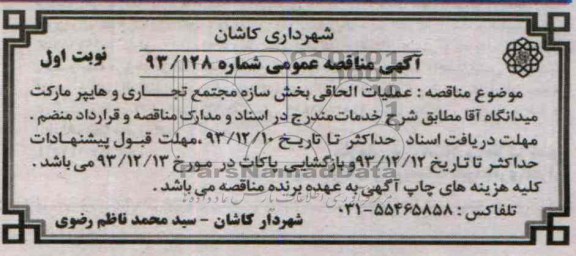 شهرداری کاشان
آگهی مناقصه عمومی شماره ۹۳/۱۲۸
نوبت اول
موضوع مناقصه : عملیات الحاقی بخش سازه مجتمع تجـــاری و هایپر مارکت
میدانگاه آقا مطابق شرح خدمات مندرج در اسناد و مدارک مناقصه و قرارداد منضم .
مهلت دریافت اسناد حداکثر تا تاریخ ۹۳/۱۲/۱۰ ،مهلت قبـول پیشنهـادات
حداکثر تا تاریخ ۹۳/۱۲/۱۲و بازگشایی پاکات در مورخ ۹۳/۱۲/۱۳ می باشد .
ParsNamadData
کلیه هزینه های چاپ آگهی به عهده برنده مناقصه می باشد .
تلفاکس : ۵۵۴۶۵۸۵۸-۰۳۱
شهردار کاشان - سید محمد ناظم رضوی